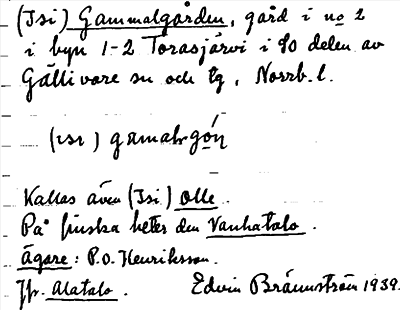 (Isi) Gammalgården, gård i no 2
i byn 1-2 Torasjärvi i SO delen av
Gällivare sn och tg, Norrb. l.
(ɪsɪ) gamalgón
Kallas även (Isi) Olle.
På finska heter den Vanhatalo.
Ägare: P.O. Henriksson.
Jfr. Alatalo. Edvin Brännström 1939.